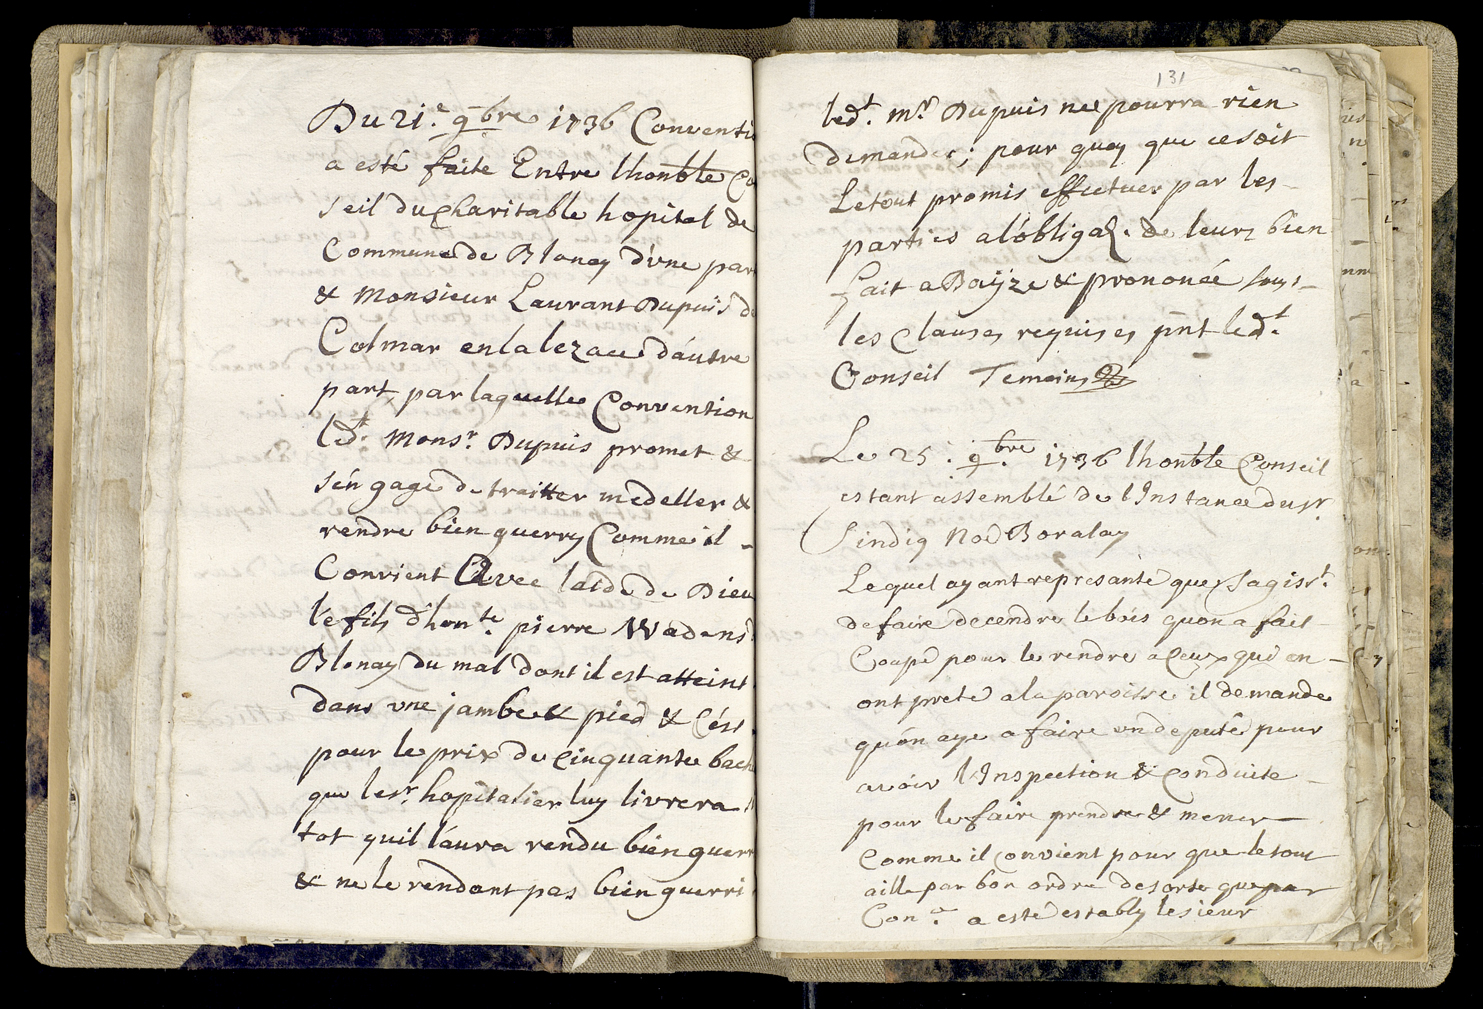 Du 21.e 9bre 1736 Conventi
a esté faite Entre lhonble Co
seil du Charitable hopital de
Commune de Blonay d'vne par
& Monsieur Laurant Dupuis d
Colmar en lalezace d'autre
part, par laquelle Convention
led.t Monsr. Dupuis promet &
s'én gage de traitter medeller &
rendre bien guerry Comme il -
Convient Avec laide de Dieu
le fils d'honte. pierre Wadens
Blonay du mal dont il est atteint
dans vne jambe & pied & C'ést
pour le prix de Cinquante bach
que le sr. hopitalier luy livrera
tot quil l'aura rendu bien guerr
& ne le rendant pas bien guerri
131
led.t mr. Dupuis ne pourra rien
demander; pour quoy que ce soit
Le tout promis effectuer par les
parties a l'obliga͠o. de leurs bien
fait a Baÿze & prononcé sous
les Clauses requises pn̄t led.t
Conseil Temoins
Le 25.e 9.bre 1736 lhonble Conseil
estant assemblé de l'Instance du sr.
Sindiq Nod Boralay
Lequel ayant represanté que sagisst.
de faire decendre le bois quon a fait
Coupé pour le rendre a Ceux qui en -
ont preté a la paroisse il demande
quón aye a faire un deputé pour
avoir l'Inspection & Conduite
pour le faire prendre & mener
Comme il convient pour que le tout
aille par bon ordre desorte que par
Con.e a esté establÿ le sieur